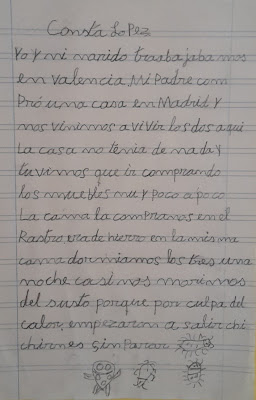 Consta LoPez
Yo y mi marido trasbajabamos
en valencia, Mi Padre com
Pró una casa en Madrid y
nos vinimos a vivir los dos aqui
La casa no tenia de nada y
tuvimos que ir comprando
los muebles muy poco a poco
La cama la compramos en el
Rastro, era de hierro en la misma
cama dormiamos los tres una
noche casi nos morimos
del susto porque por culpa del
calor, empezaron a salir chi
chirnes, sin parar